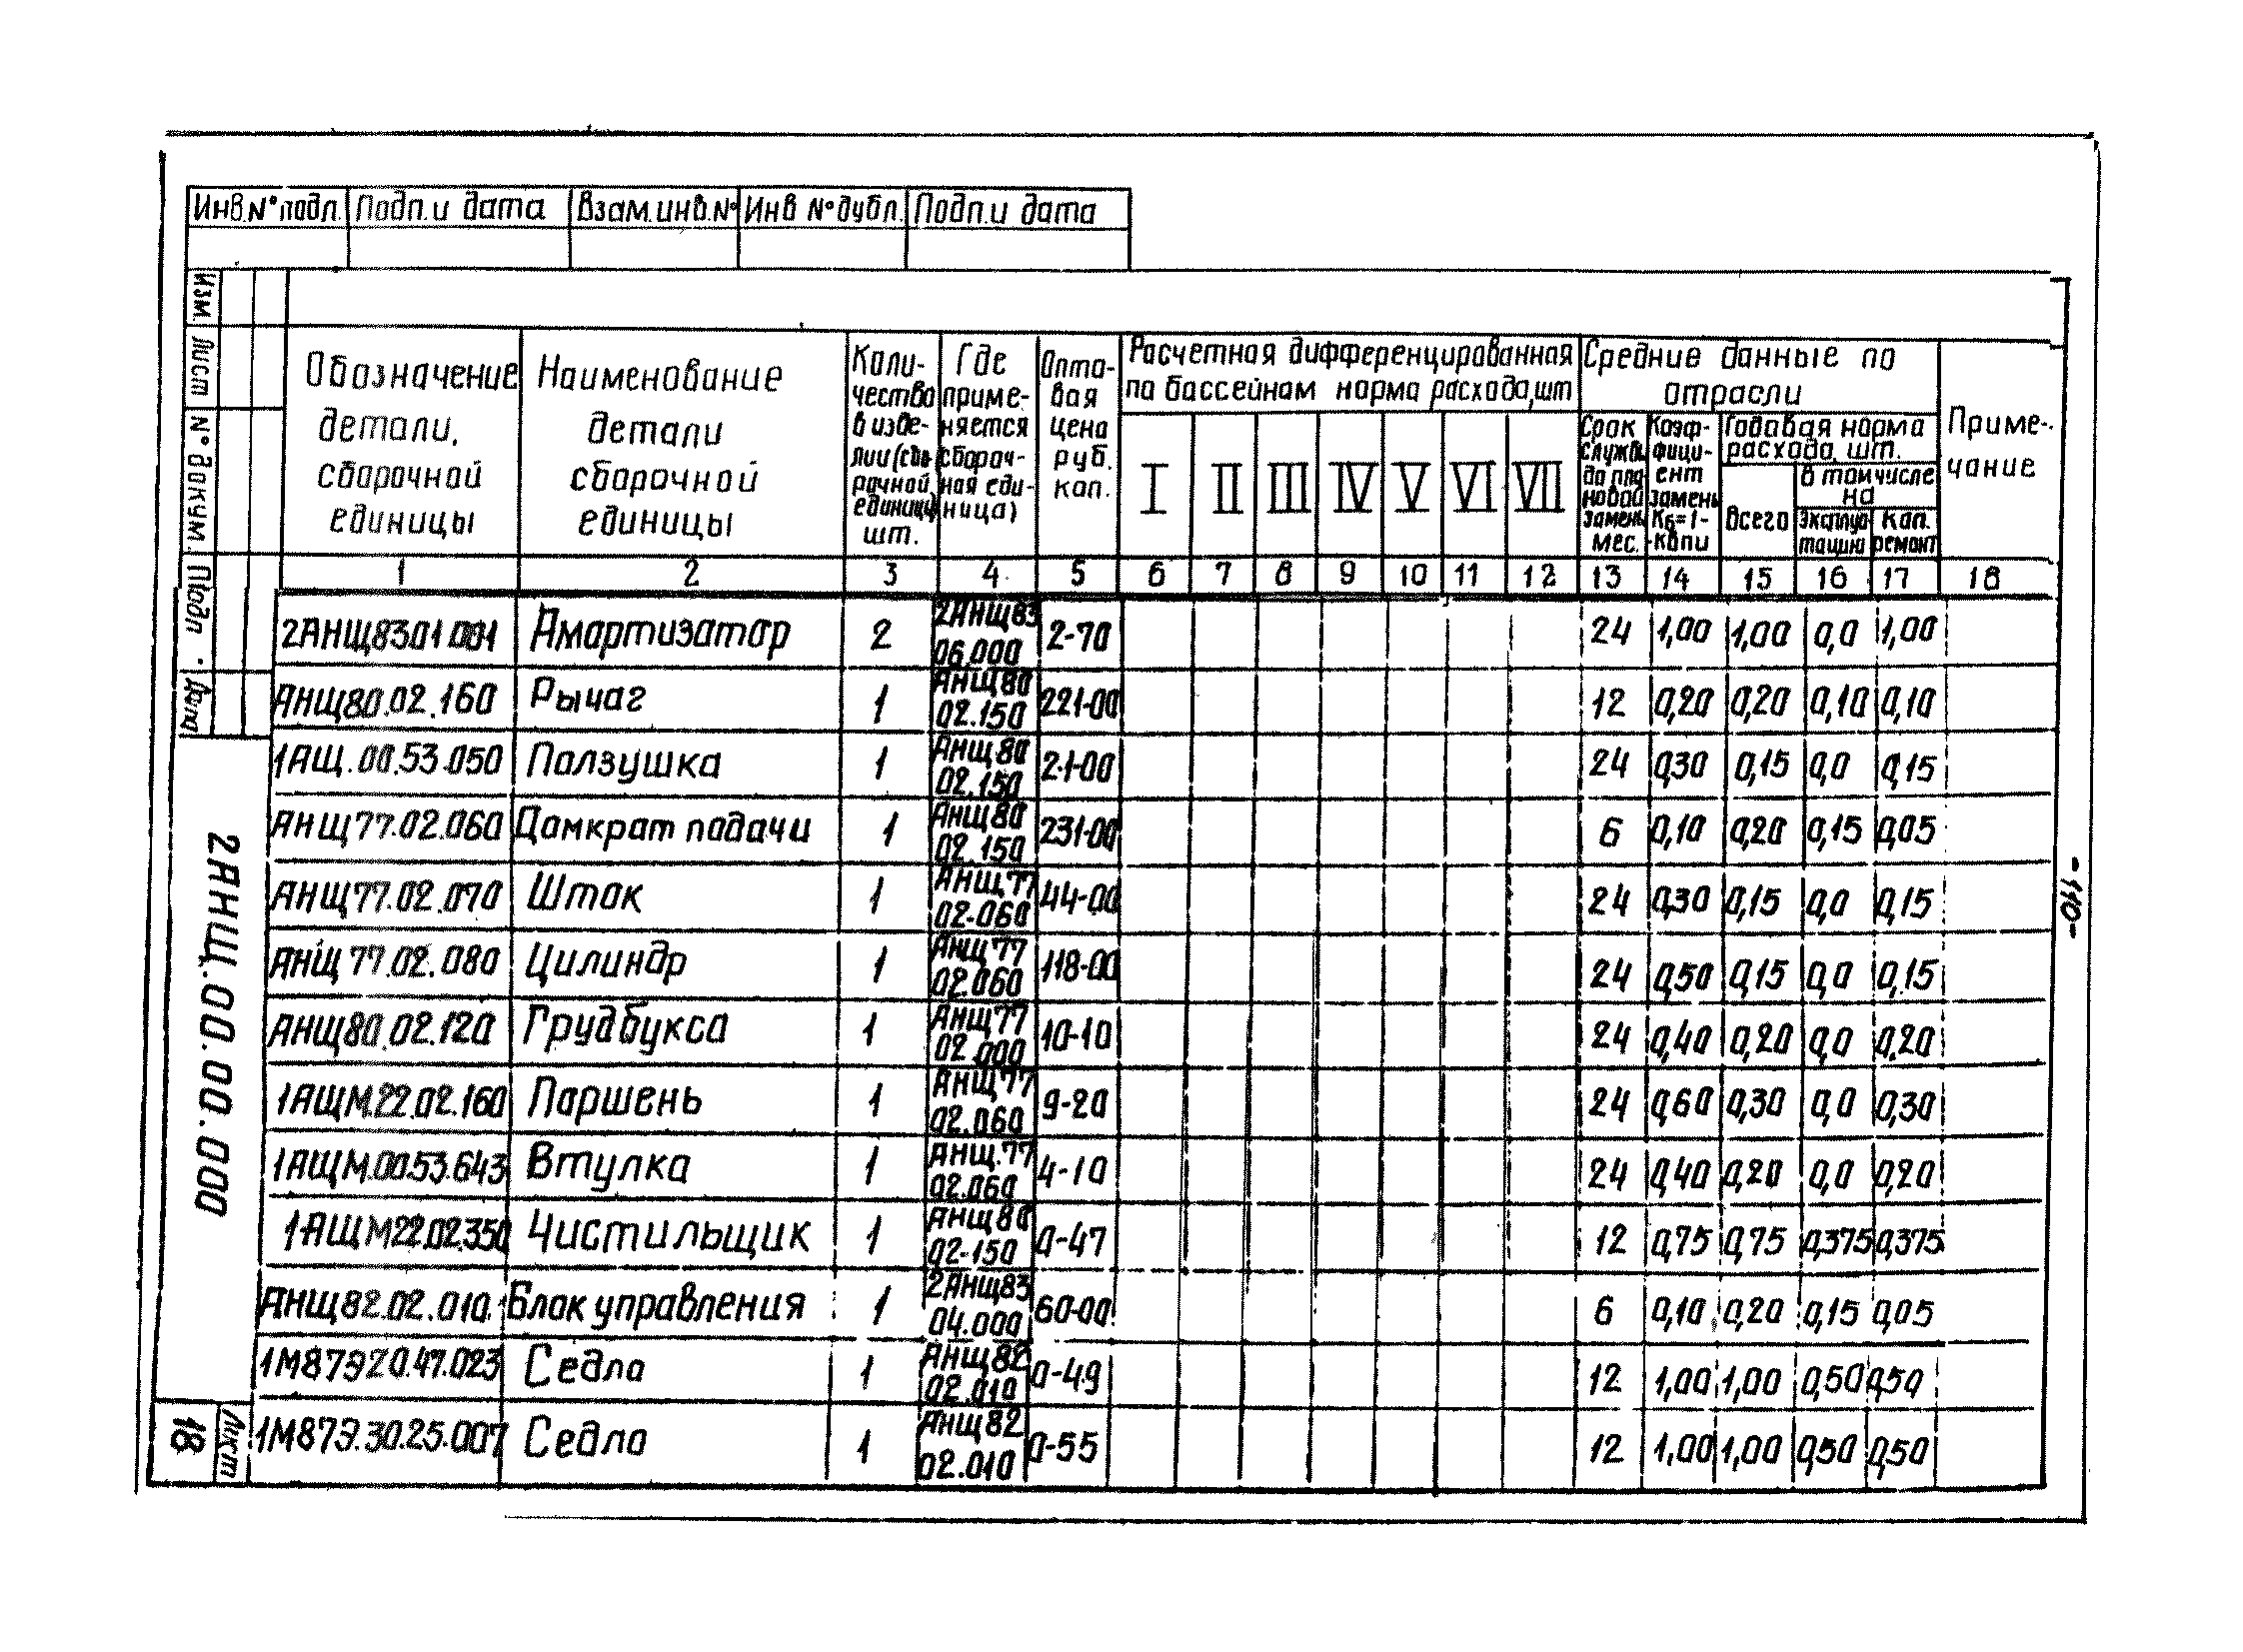 Инв.№ подл. Подп. и дата Взам.инв.№ Инв №дубл. Подп.и дата
Изм. Лист № докум. Подп. Дата
Обозначение детали, сборочной единицы
Наименование детали сборочной единицы
Коли-
чество
в изде-
лии (сбо-
рочной
единице)
шт.
Где
приме-
няется
сбороч-
ная еди-
ница)
Опто-
вая
цена
руб.
коп.
Расчетная дифференцированная
по бассейнам норма расхода, шт
I II III IV V VI VII
Средние данные по
отрасли
Срок
службы
до пла
новой
замены
мес.
Коэф-
фици-
ент
замены
Кб=1-
-Капи
Годовая норма
расхода, шт.
всего
в том числе
на
эксплуа
тацию
кап.
ремонт
Приме-
чание
1 2 3 4 5 6 7 8 9 10 11 12 13 14 15 16 17 18
2АНЩ8301001 Амортизатор 2 2АНЩ83 06.000 2-70 24 1,00 1,00 0,0 1,00
АНЩ80.02.160 Рычаг 1 АНЩ80 02.150 221-00 12 0,20 0,20 0,10 0,10
1АЩ.00.53.050 Ползушка 1 АНЩ80 02.150 21-00 24 0,30 0,15 0,0 0,15
АНЩ77.02.060 Домкрат подачи 1 АНЩ80 02.150 231-00 6 0,10 0,20 0,15 0,05
АНЩ77.02.070 Шток 1 АНЩ.77 02-060 44-00 24 0,30 0,15 0,0 0,15
АНЩ77.02.080 Цилиндр 1 АНЩ77 02.060 118-00 24 0,50 0,15 0,0 0,15
АНЩ80.02.120 Грудбукса 1 АНЩ77 02.000 10-10 24 0,40 0,20 0,0 0,20
1АЩМ.22.02.160 Поршень 1 АНЩ77 02.060 9-20 24 0,60 0,30 0,0 0,30
1АЩМ.00.53.643 Втулка 1 АНЩ.77 02.060 4-10 24 0,40 0,20 0,0 0,20
1АЩМ22.02.350 Чистильщик 1 АНЩ80 02-150 0-47 12 0,75 0,75 0,375 0,375
АНЩ82.02.010 Блок управления 1 2АНЩ83 04.000 60-00 6 0,10 0,20 0,15 0,05
1М87Э20.47.023 Седло 1 АНЩ82 02.010 0-49 12 1,00 1,00 0,50 0,50
1М87Э.30.25.007 Седло 1 АНЩ82 02.010 0-55 12 1,00 1,00 0,50 0,50
2АНЩ.00.00.000
Лист
18
-110-